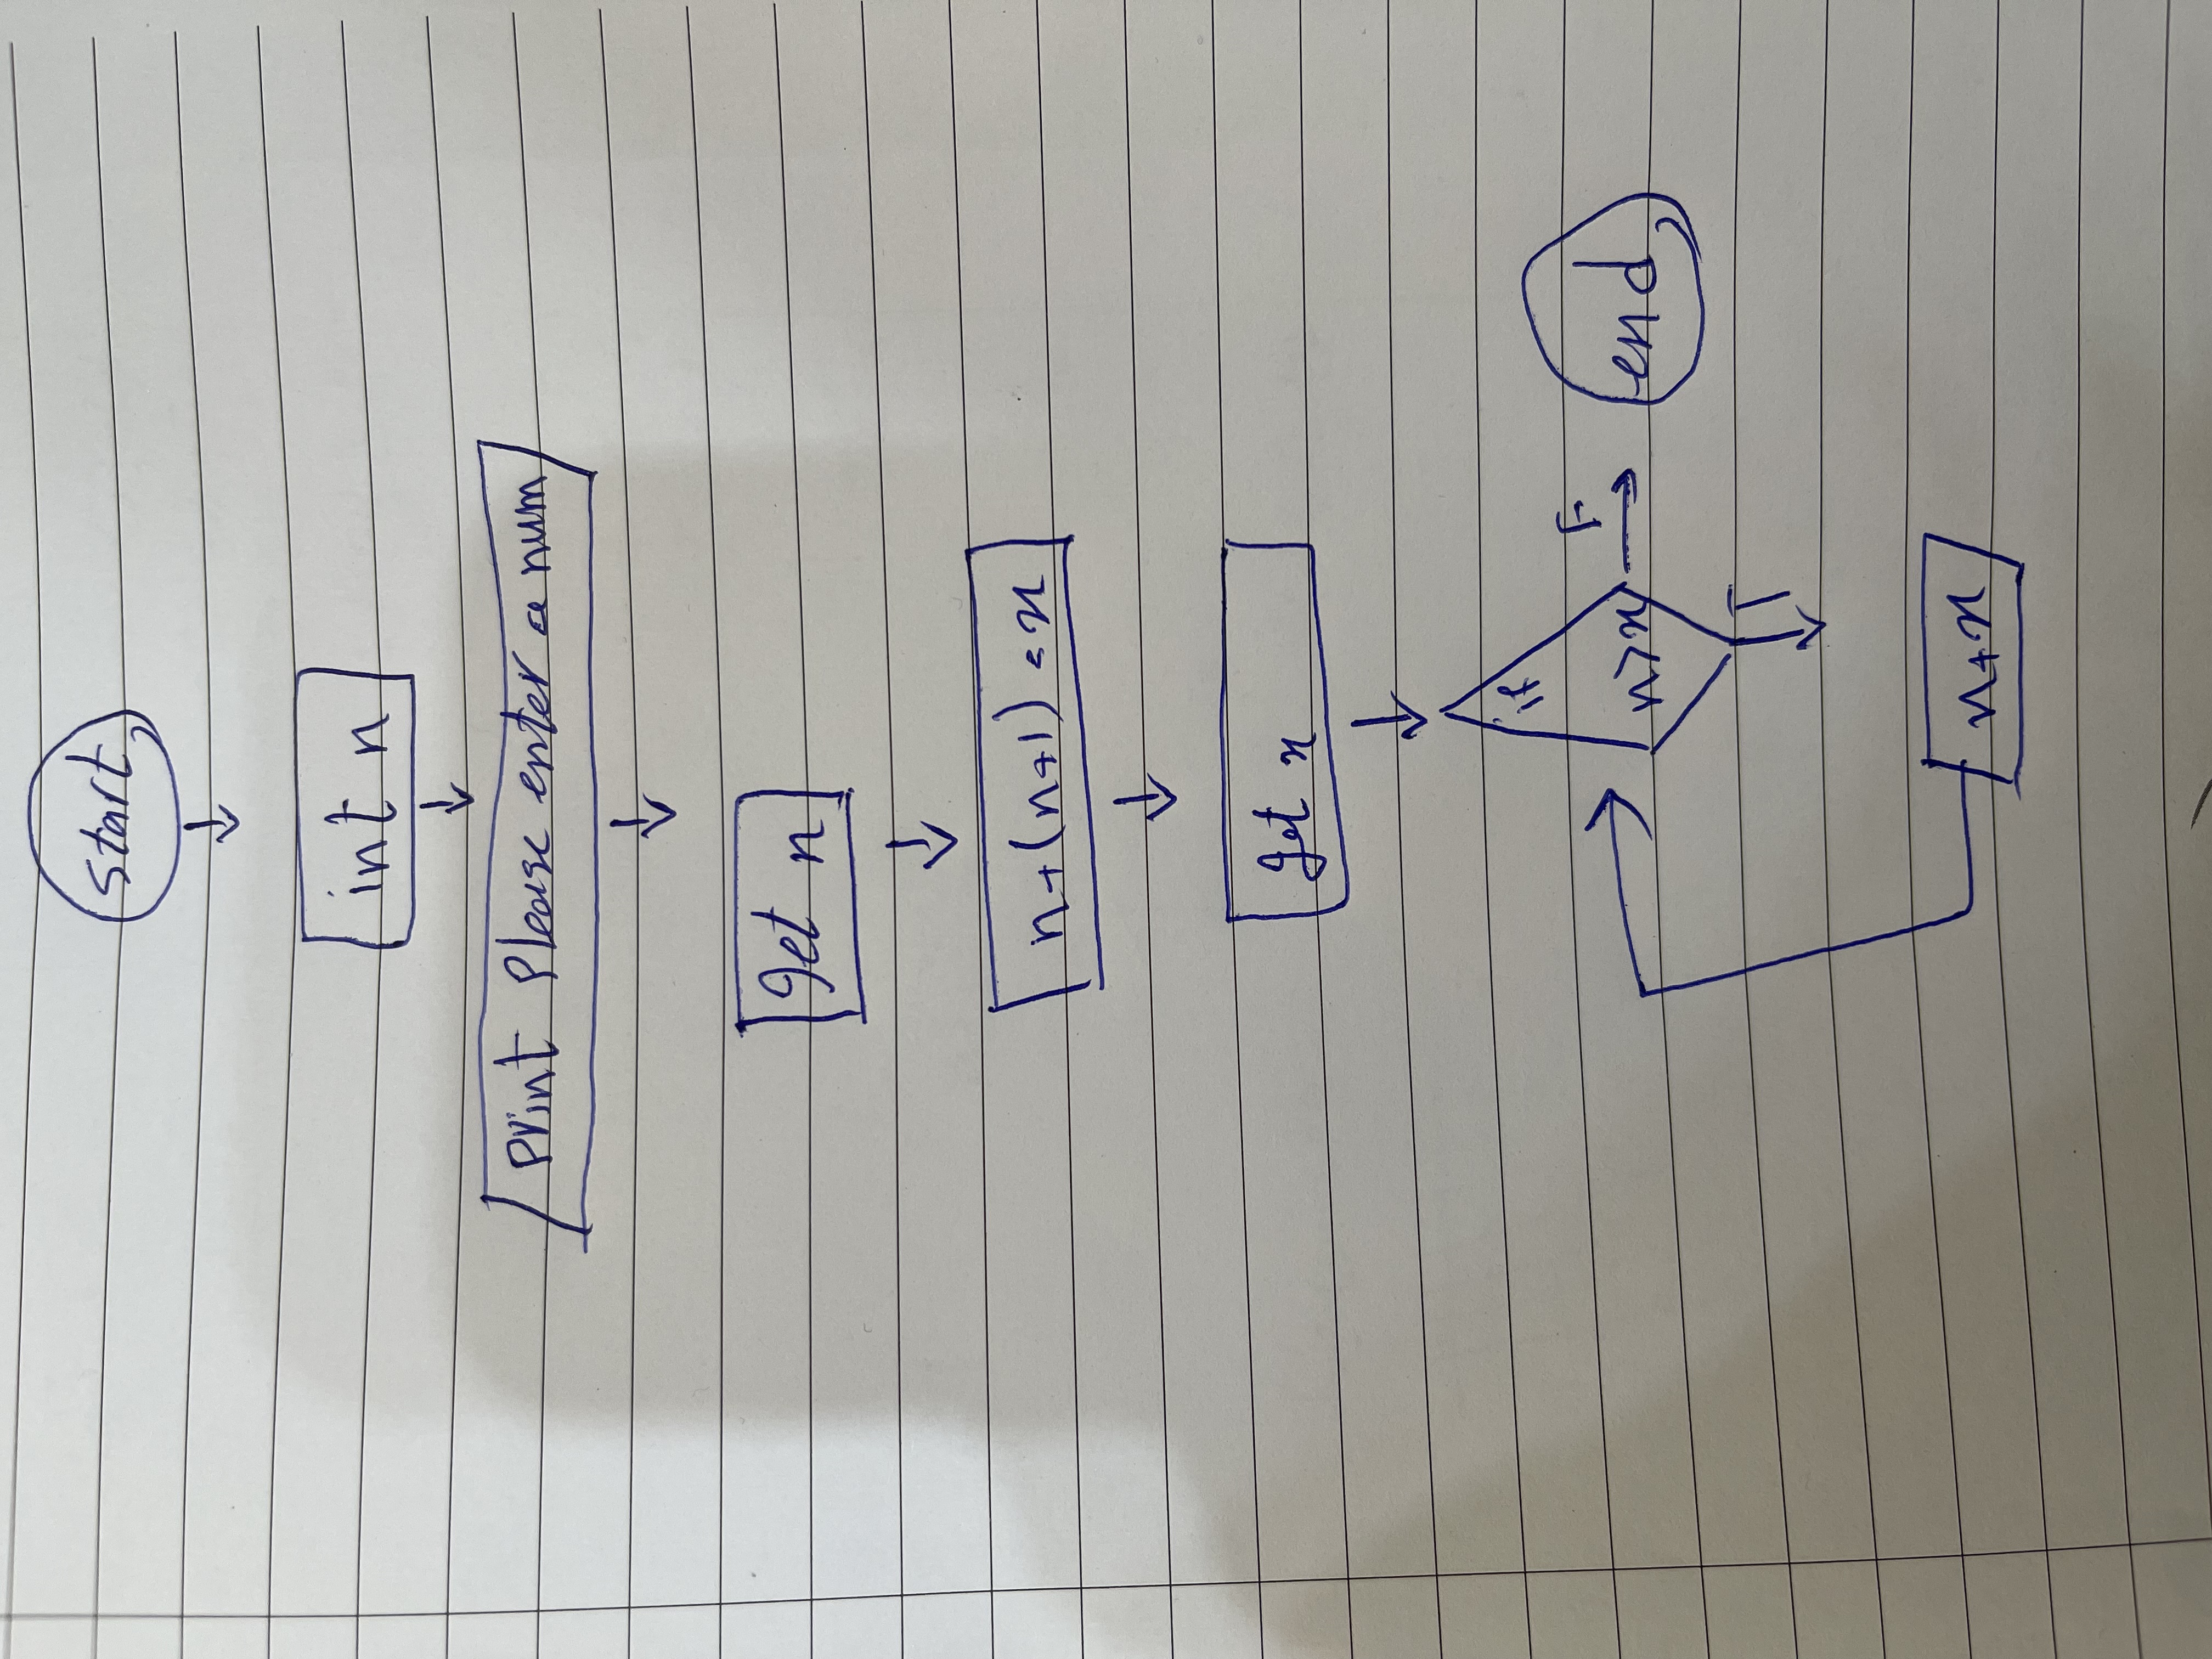 start
int n
Print Please enter a num
get n
n+(n+1) = x
get x
if
n>x
F
end
T
n+x